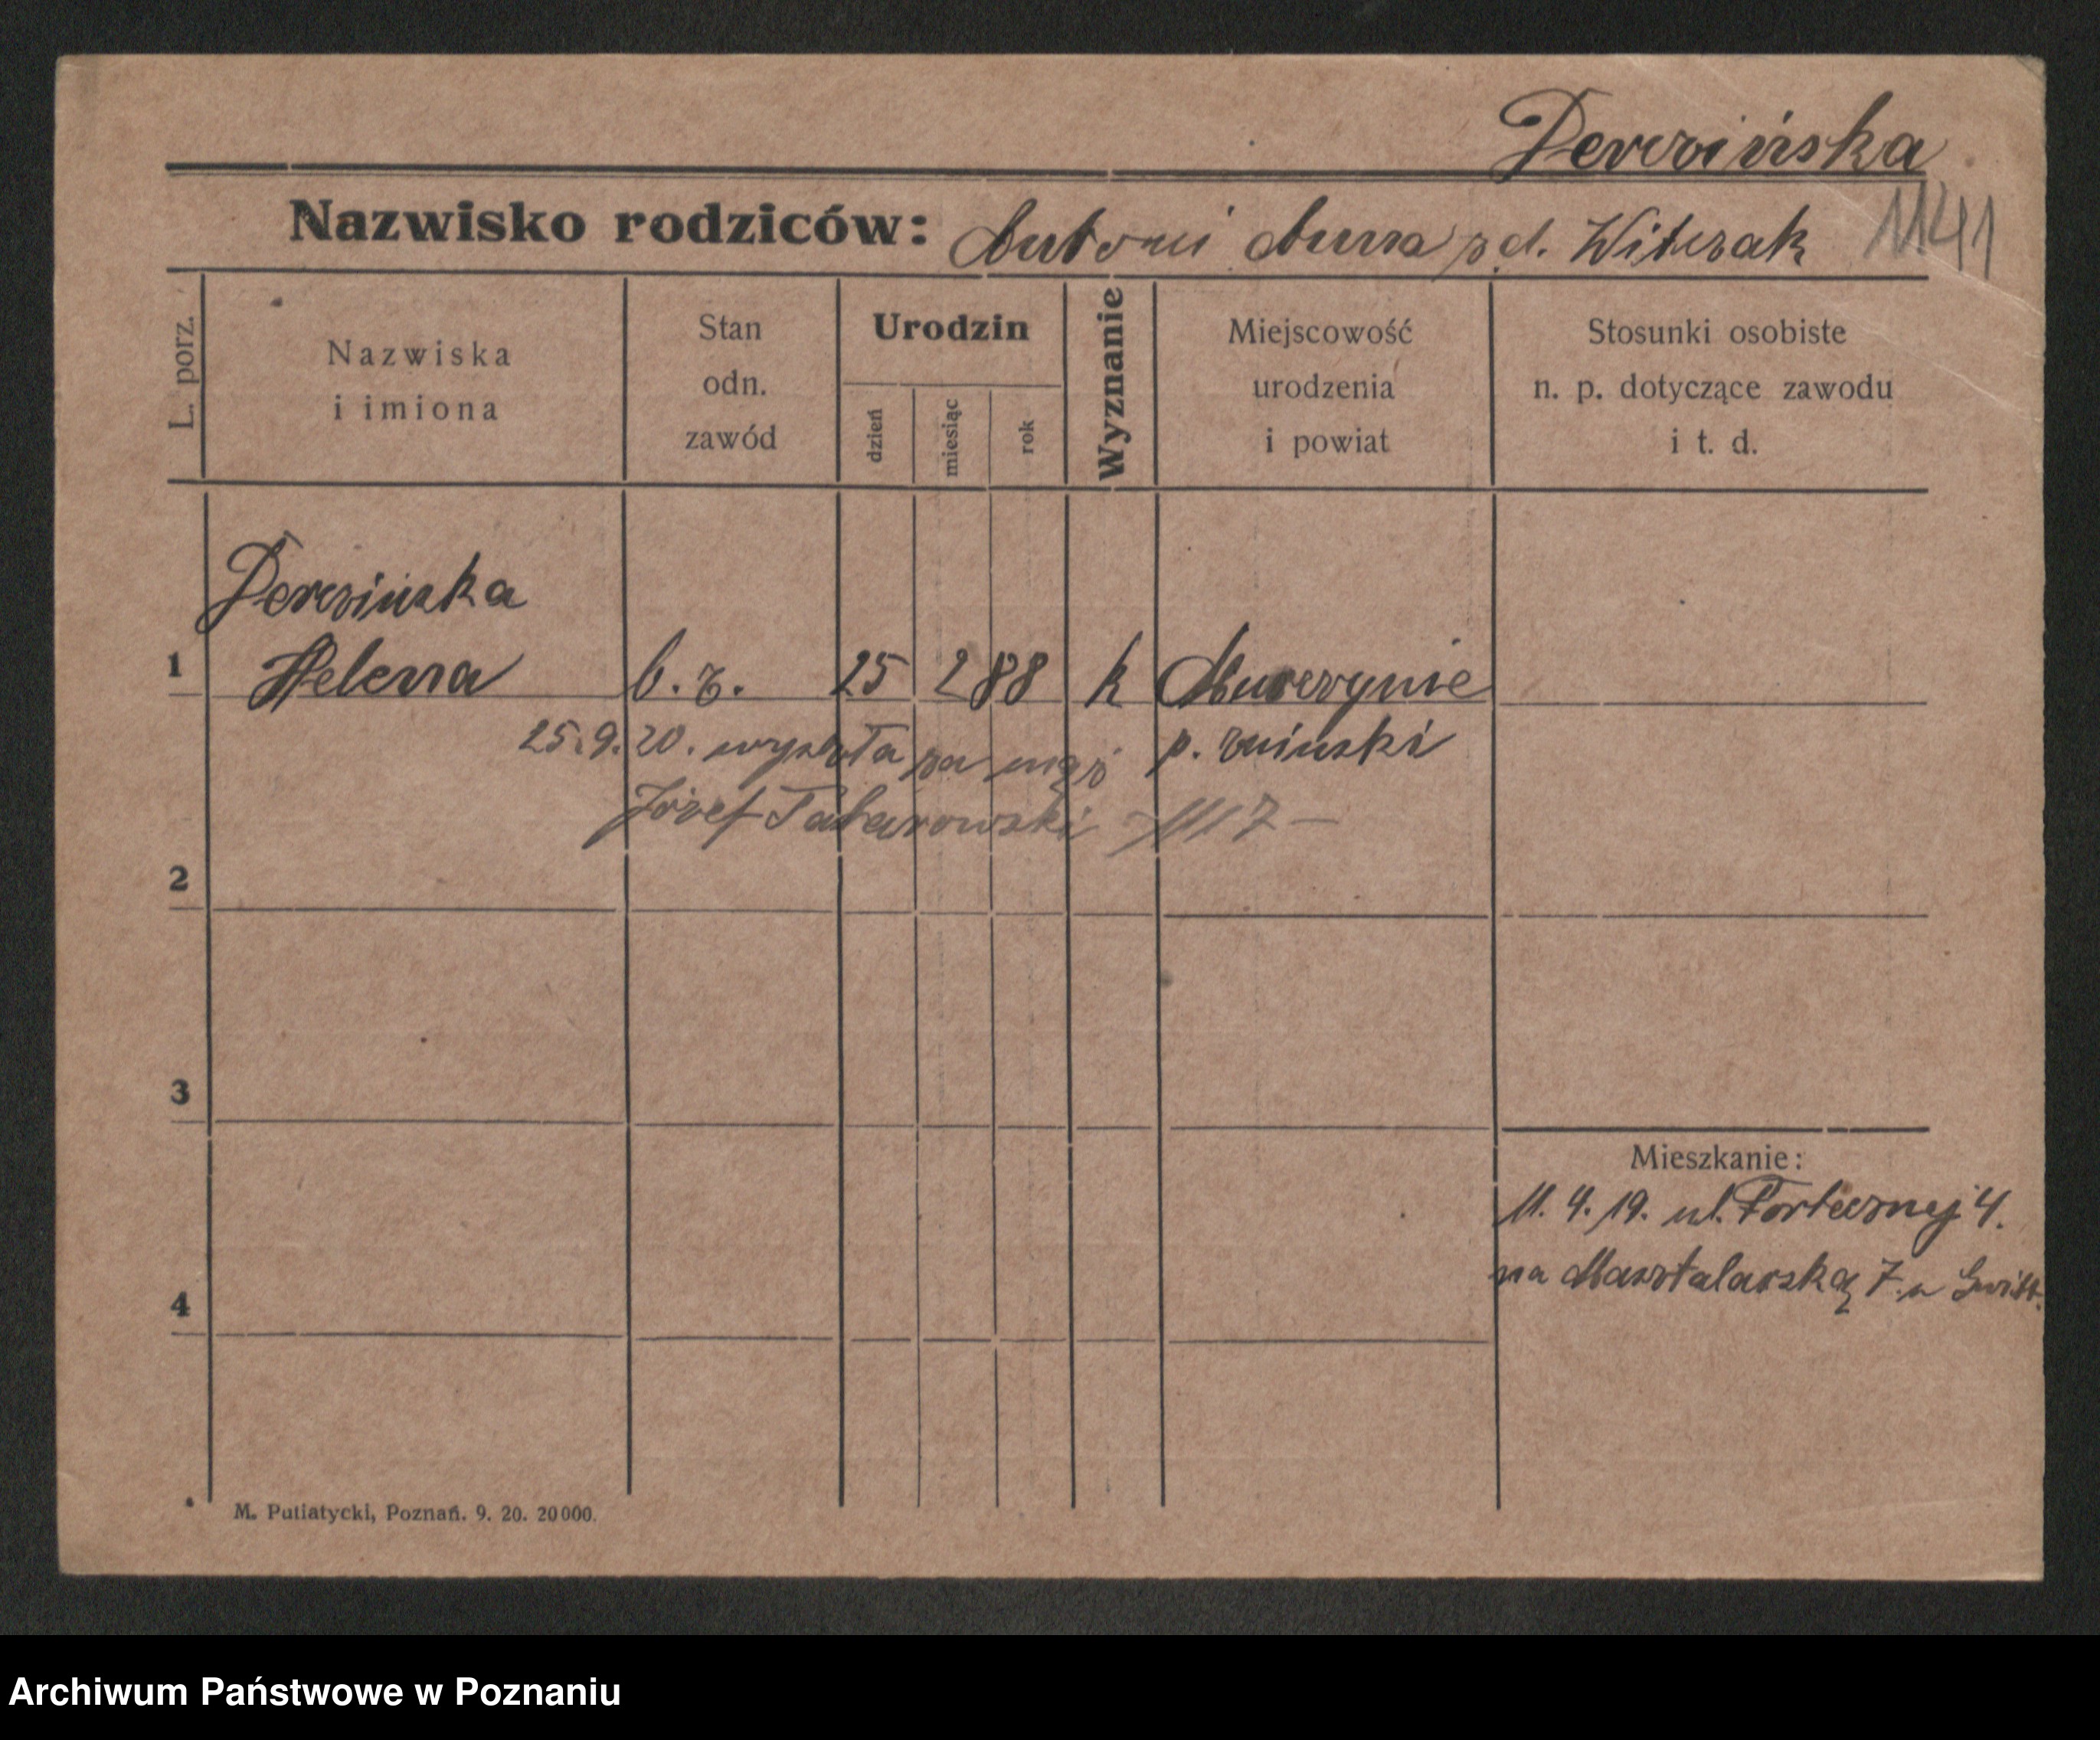 Derezińska
Nazwisko rodziców: Antoni Anna pd. Witczak 1141
L. porz.
Nazwiska
i imiona
Stan
odn.
zawód
Urodzin
dzień
miesiąc
rok
Wyznanie
Miejscowość
urodzenia
i powiat
Stosunki osobiste
n. p. dotyczące zawodu
i t. d.
Derezińska
1 Helena b. z. 25 2 88 k Murczynie
25.9.20. wyszła za mąż p. żniński
Józef Tabarowski
2
3
Mieszkanie:
11. 4. 19. ul. Fortecznej 4.
na Masztalarską 7. u
4
M. Putiatycki, Poznań. 9. 20. 20000.
Archiwum Państwowe w Poznaniu